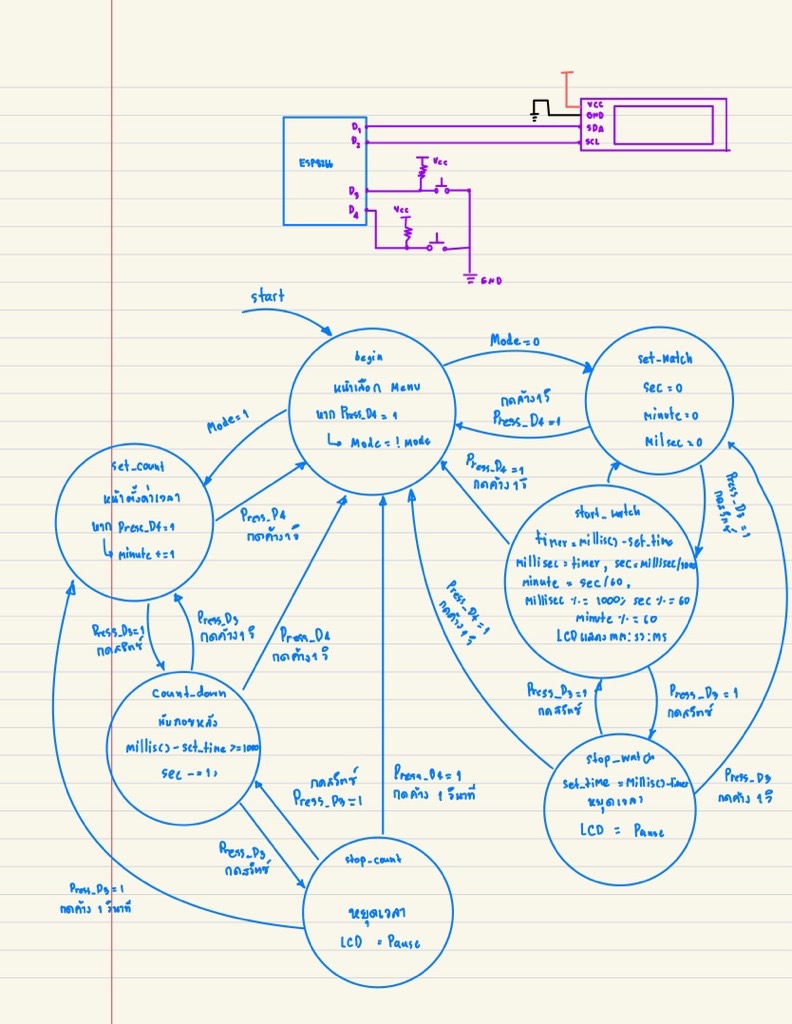 VCC
GND
SDA
SCL
ESP8266
D1
D2
D3
D4
Vcc
Vcc
GND
start
begin
หน้าเลือก Menu
หาก Press_D4 = 1
↳ Mode = ! Mode
Mode = 0
set-watch
sec = 0
minute = 0
Milsec = 0
กดค้าง 1 วิ
Press_D4 = 1
Mode = 1
set_count
หน้าตั้งค่าเวลา
หาก Press_D4 = 1
↳ minute += 1
Press_D4
กดค้าง 1 วิ
Press_D4 = 1
กดค้าง 1 วิ
Press_D3 = 1
กดสวิทช์
start_watch
timer = millis() - set_time
millisec = timer, sec = millisec/1000
minute = sec/60,
millisec %= 1000; sec %= 60
minute %= 60
LCD แสดง mm:ss:ms
Press_D3 = 1
กดสวิทช์
Press_D3
กดค้าง 1 วิ
Press_D4
กดค้าง 1 วิ
Press_D4 = 1
กดค้าง 1 วิ
count_down
นับถอยหลัง
millis() - set_time >= 1000
sec -= 1;
Press_D3 = 1
กดสวิทช์
Press_D3 = 1
กดสวิทช์
stop_watch
set_time = Millis() - timer
หยุดเวลา
LCD = Pause
Press_D3
กดค้าง 1 วิ
กดสวิทช์
Press_D3 = 1
Press_D4 = 1
กดค้าง 1 วินาที
Press_D3
กดสวิทช์
stop_count
หยุดเวลา
LCD = Pause
Press_D3 = 1
กดค้าง 1 วินาที